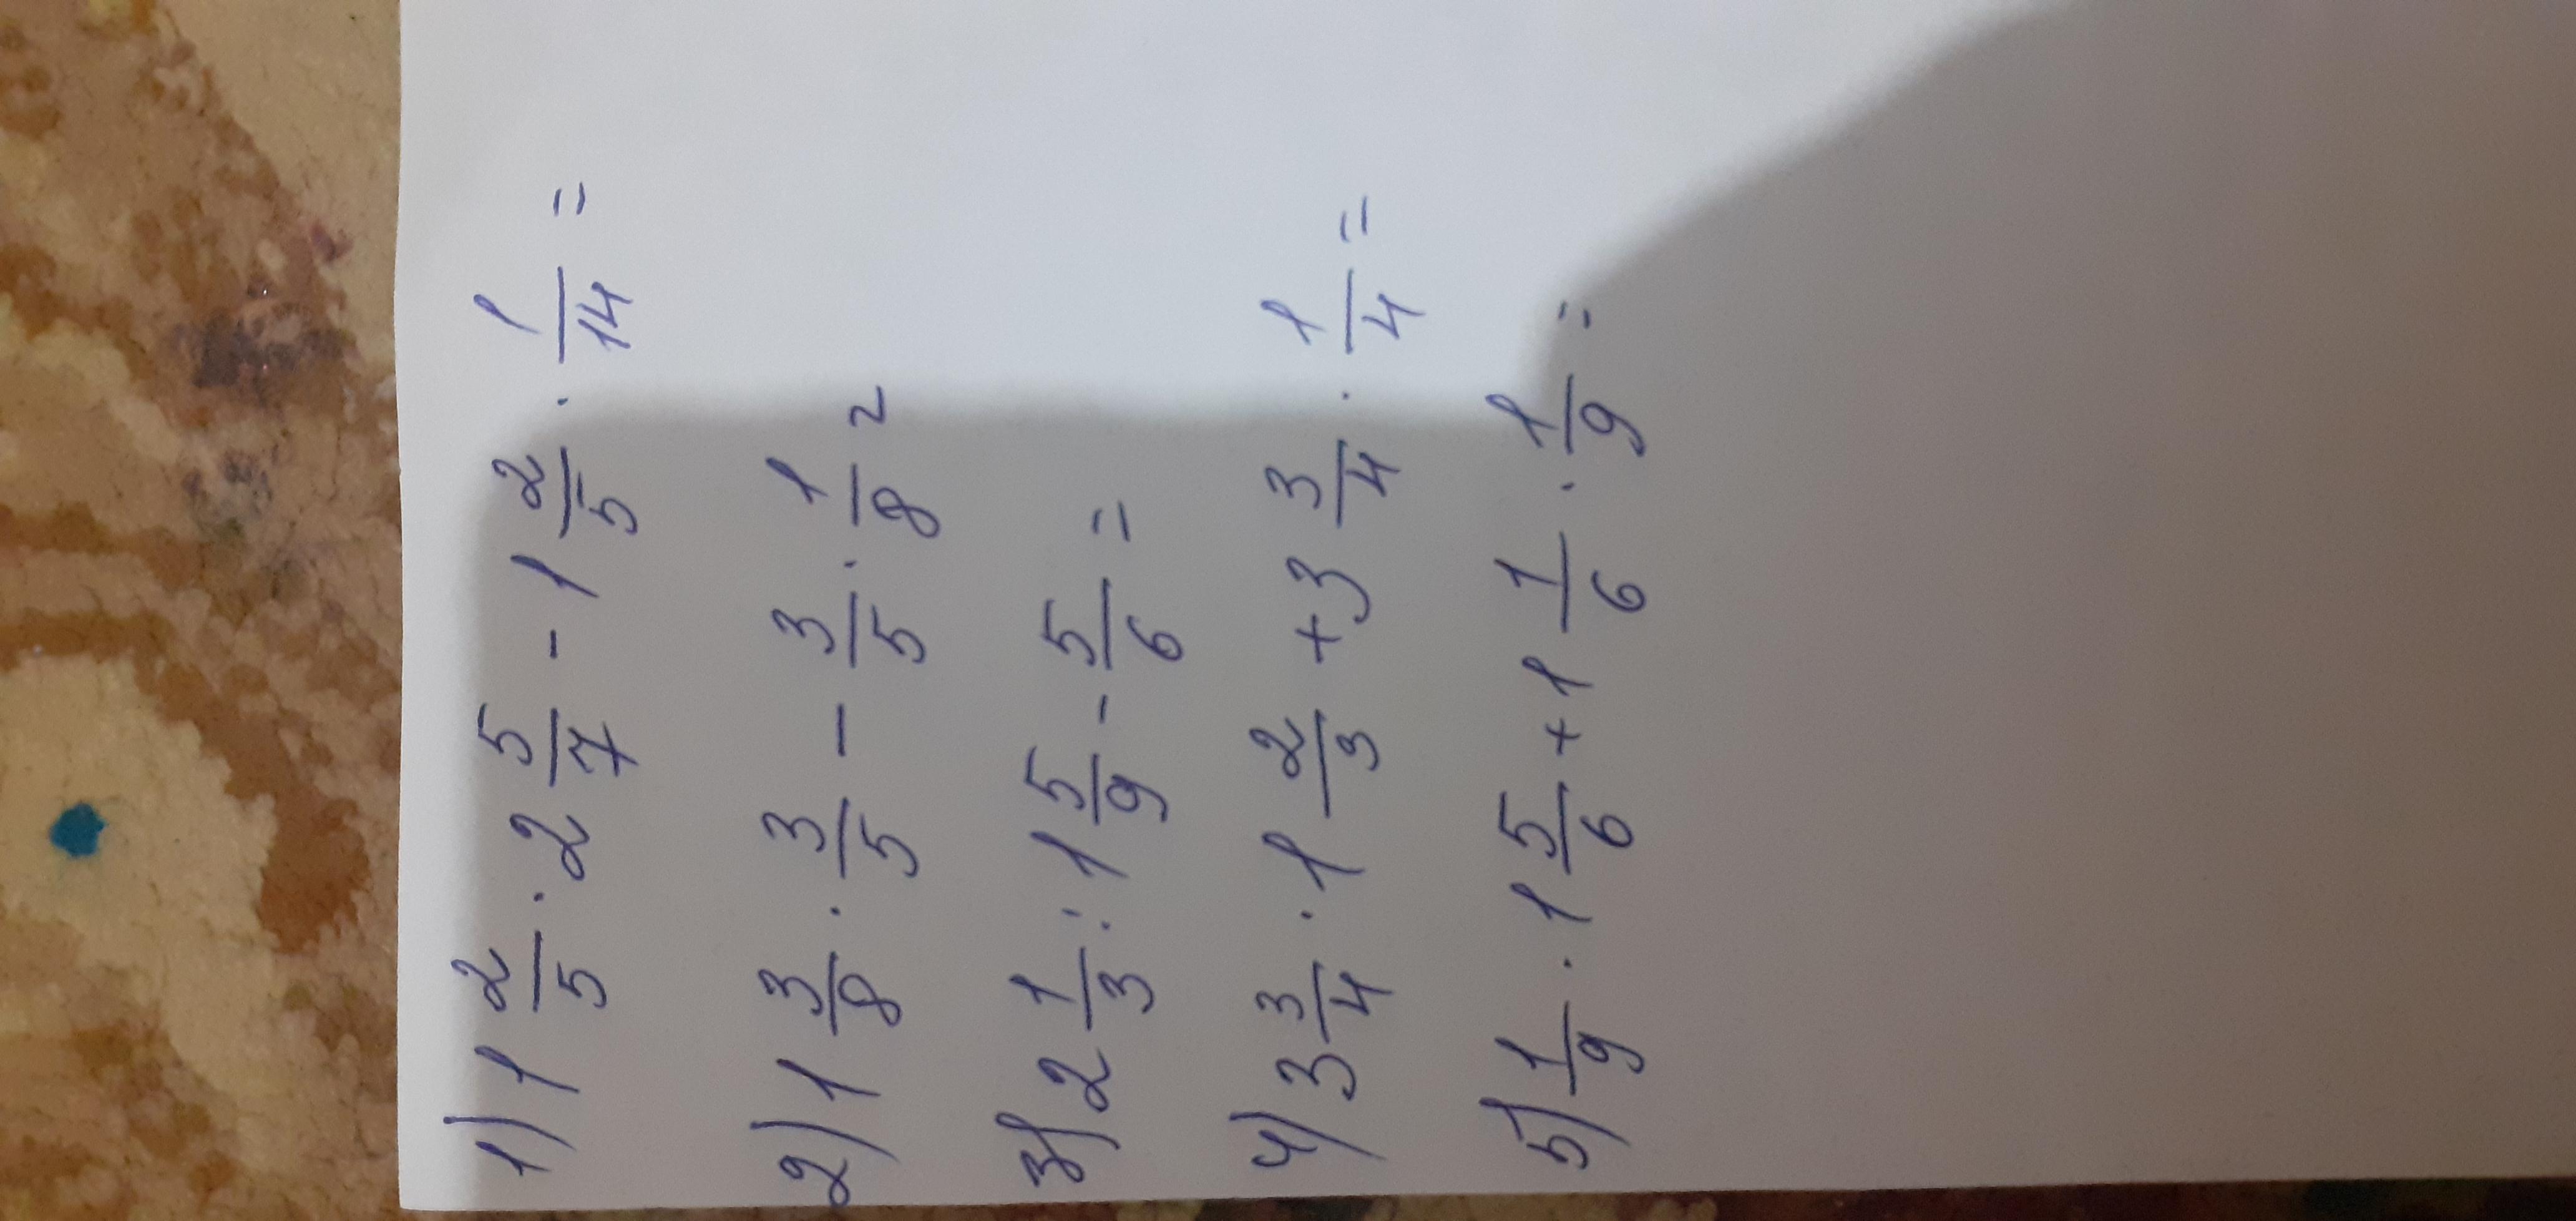 1) 1 2/5 · 2 5/7 - 1 2/5 · 1/14 =
2) 1 3/8 · 3/5 - 3/5 · 1/8 =
3) 2 1/3 : 1 5/9 - 5/6 =
4) 3 3/4 · 1 2/3 + 3 3/4 · 1/4 =
5) 1/9 · 1 5/6 + 1 1/6 · 1/9 =